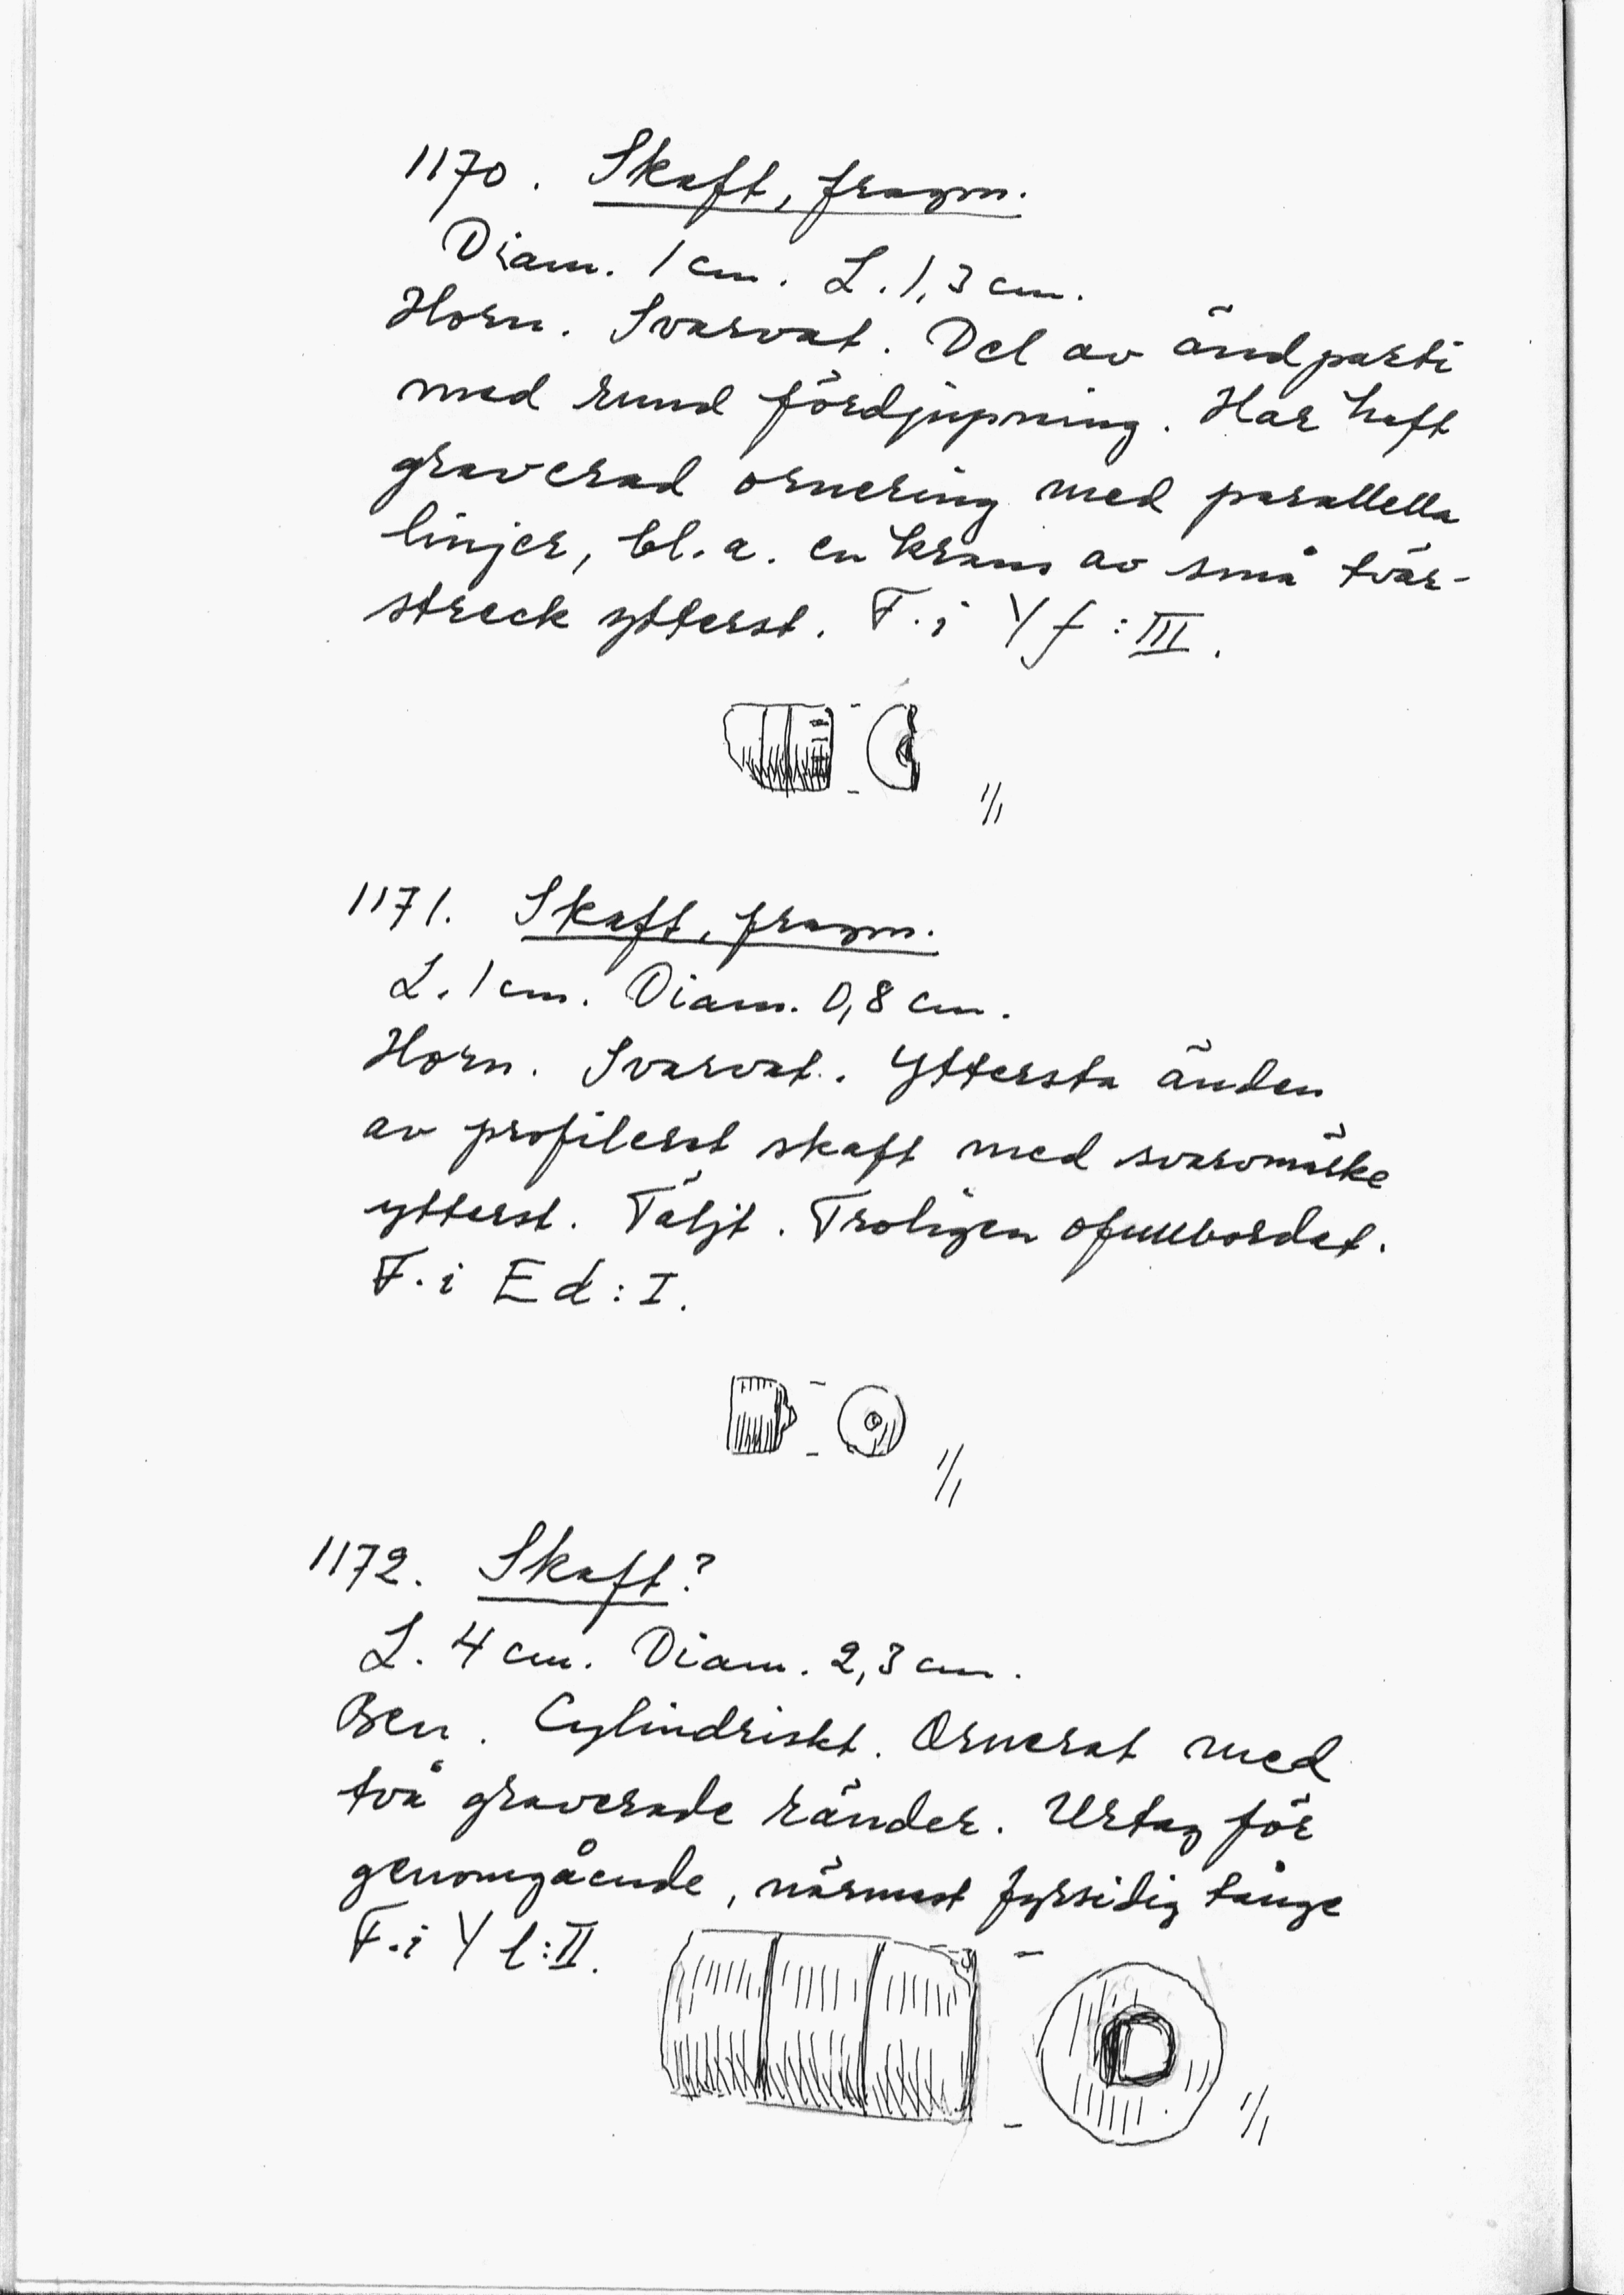 1170. Skaft, fragm.
Diam. 1 cm. L. 1,3 cm.
Horn. Svarvat. Del av ändparti
med rund fördjupning. Har haft
graverad ornering med parallella
linjer, bl.a. en krans av små tvär-
streck ytterst. F. i Y f : III.
1/1
1171. Skaft, fragm.
L. 1 cm. Diam. 0,8 cm.
Horn. Svarvat. Yttersta änden
av profilerat skaft med svarvmärke
ytterst. Täljt. Troligen ofullbordat.
F. i E d : I.
1/1
1172. Skaft?
L. 4 cm. Diam. 2,3 cm.
Ben. Cylindriskt. Ornerat med
två graverade ränder. Urtag för
genomgående, närmast fyrsidig tånge
F. i Y l : II.
1/1